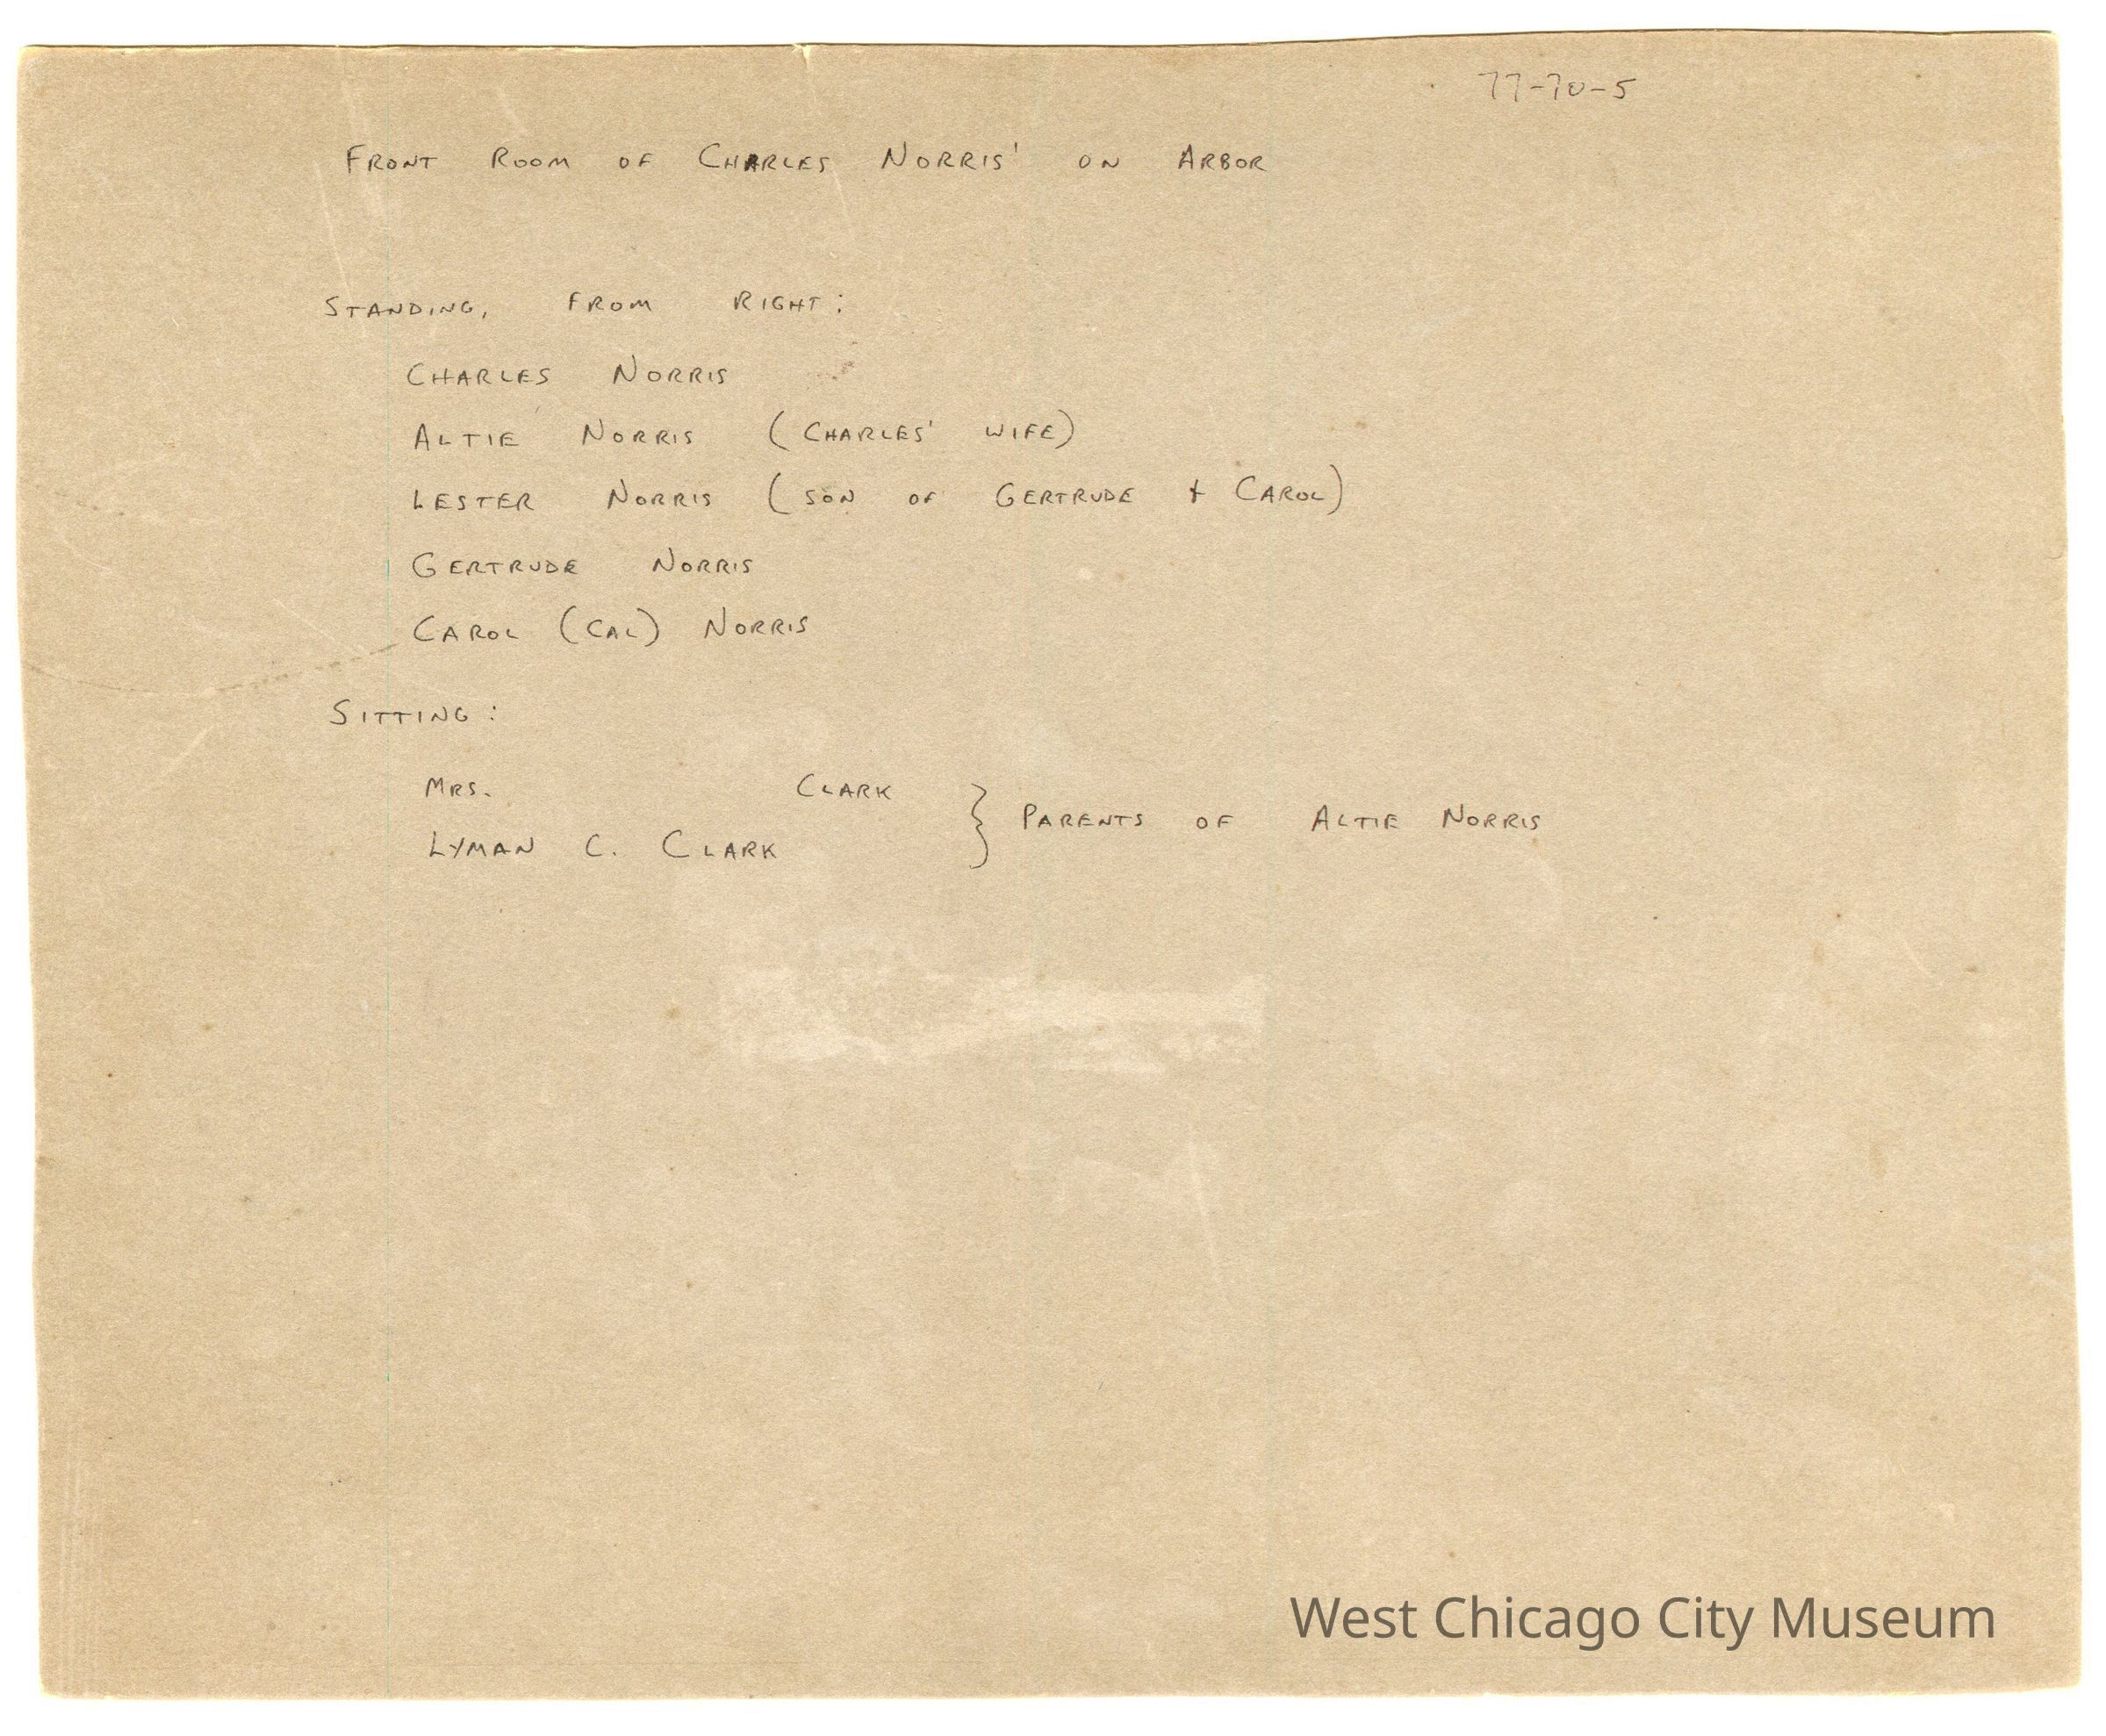 77-70-5
FRONT ROOM OF CHARLES NORRIS' ON ARBOR
STANDING, FROM RIGHT:
CHARLES NORRIS
ALTIE NORRIS (CHARLES' WIFE)
LESTER NORRIS (SON OF GERTRUDE + CAROL)
GERTRUDE NORRIS
CAROL (CAL) NORRIS
SITTING:
MRS. CLARK
LYMAN C. CLARK
} PARENTS OF ALTIE NORRIS
West Chicago City Museum